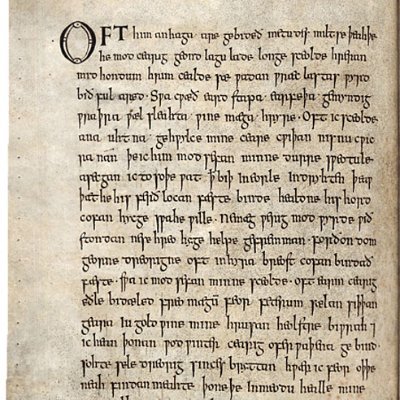 OFT him anhaga are gebideð metudes miltse þeah þe
he mod cearig geond lagu lade longe sceolde hreran
mid hondum hrim cealde sæ ƿadan ƿræc lastas ƿyrd
bið ful aræd · Sƿa cƿæð eard stapa earfeþa gemyndig
ƿraþra ƿæl sleahta ƿine mæga hryre · Oft ic sceolde
ana uhtna gehƿylce mine ceare cƿiþan nis nu cƿic
ra nan þe ic him mod sefan minne durre sƿeotule
asecgan ic to soþe ƿat þ̅ biþ in eorle indryhten þeaƿ
þæt he his ferð locan fæste binde healdne his hord
cofan hycge sƿa he ƿille · Ne mæg ƿerig mod ƿyrde ƿið
stondan ne se hreo hyge helpe gefremman · Forðon dom
georne dreorigne oft in hyra breost cofan bindað
fæste · sƿa ic mod sefan minne sceolde · oft earm cearig
eðle bidæled freo mægū feor feterum sælan siþþan
geara iu gold ƿine mine hrusan heolstre biƿrah ⁊
ic hean þonan ƿod ƿinter cearig ofer ƿaþena gebind
sohte sele dreorig sinces bryttan hƿær ic feor oþþe
neah findan meahte þone þe in meodu healle mine